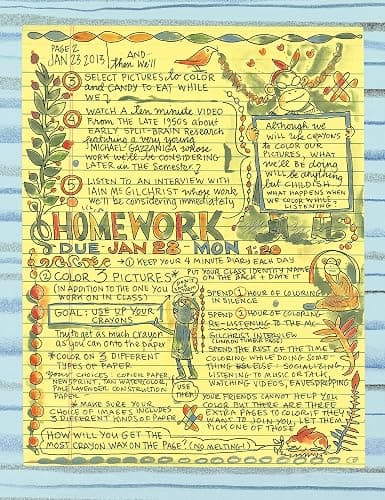 PAGE 2
JAN 23 2013
AND
then We'll
③ SELECT PICTURES to COLOR
and CANDY TO EAT WHILE
WE?
④ WATCH A ten minute VIDEO
FROM THE LATE 1950s ABOUT
EARLY SPLIT-BRAIN Research
featuring a very young
MICHAEL GAZZANIGA whose
work we'll be considering
LATER in the Semester?
⑤ LISTEN TO AN INTERVIEW with
IAIN MCGILCHRIST whose work
we'll be considering immediately
Although we
will use CRAYONS
to COLOR OUR
PICTURES, WHAT
we'll BE doing
will be anything
but CHILDISH
WHAT HAPPENS WHEN
WE COLOR WHILE
LISTENING
HOMEWORK
DUE JAN 28 - MON 1:20
① KEEP YOUR 4 MINUTE DIARIES EACH DAY
② COLOR 3 PICTURES*
(IN ADDITION TO THE ONE YOU
WORK ON IN CLASS)
GOAL: USE UP YOUR
CRAYONS
Try to get as much crayon
as you can onto the paper
* COLOR ON 3 DIFFERENT
TYPES OF PAPER
YOUR CHOICES, COPIER PAPER
NEWSPRINT, TAN WATERCOLOR,
PALE LAVENDER CONSTRUCTION
PAPER
* MAKE SURE YOUR
CHOICE OF IMAGES INCLUDES
3 DIFFERENT KINDS OF PAPER
HOW WILL YOU GET THE
MOST CRAYON WAX ON THE PAGE? (NO MELTING!)
USE
THEM
PUT YOUR CLASS IDENTITY NAME
ON THE BACK + DATE IT
SPEND 1 HOUR OF COLORING
IN SILENCE
SPEND 1 HOUR OF COLORING
RE-LISTENING TO THE MC-
GILCHRIST INTERVIEW
SPEND THE REST OF THE TIME
COLORING WHILE DOING SOME
THING ELSE: SOCIALIZING,
LISTENING TO MUSIC OR TALK,
WATCHING VIDEOS, EAVESDROPPING
YOUR FRIENDS CANNOT HELP YOU
COLOR BUT THERE ARE THREE
EXTRA PAGES TO COLOR IF THEY
WANT TO JOIN YOU, LET THEM
PICK ONE OF THOSE